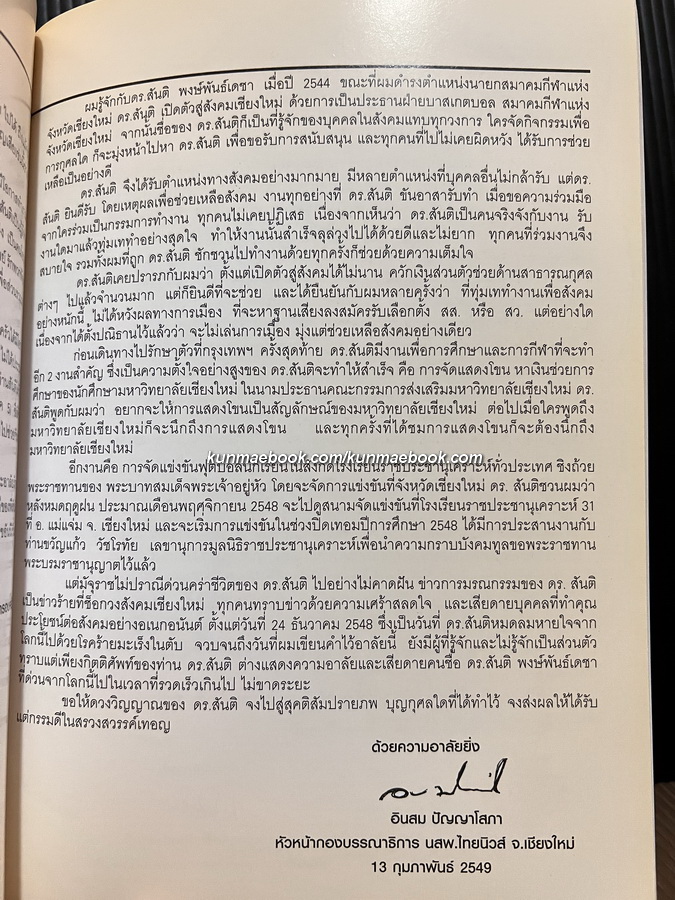 ผมรู้จักกับดร.สันติ พงษ์พันธ์เดชา เมื่อปี 2544 ขณะที่ผมดำรงตำแหน่งนายกสมาคมกีฬาแห่ง
จังหวัดเชียงใหม่ ดร.สันติ เปิดตัวสู่สังคมเชียงใหม่ ด้วยการเป็นประธานฝ่ายบาสเกตบอล สมาคมกีฬาแห่ง
จังหวัดเชียงใหม่ จากนั้นชื่อของ ดร.สันติก็เป็นที่รู้จักของบุคคลในสังคมแทบทุกวงการ ใครจัดกิจกรรมเพื่อ
การกุศลใด ก็จะมุ่งหน้าไปหา ดร.สันติ เพื่อขอรับการสนับสนุน และทุกคนที่ไปไม่เคยผิดหวัง ได้รับการช่วย
เหลือเป็นอย่างดี
ดร.สันติ จึงได้รับตำแหน่งทางสังคมอย่างมากมาย มีหลายตำแหน่งที่บุคคลอื่นไม่กล้ารับ แต่ดร.
สันติ ยินดีรับ โดยเหตุผลเพื่อช่วยเหลือสังคม งานทุกอย่างที่ ดร.สันติ ขันอาสารับทำ เมื่อขอความร่วมมือ
จากใครร่วมเป็นกรรมการทำงาน ทุกคนไม่เคยปฏิเสธ เนื่องจากเห็นว่า ดร.สันติเป็นคนจริงจังกับงาน รับ
งานใดมาแล้วทุ่มเททำอย่างสุดใจ ทำให้งานนั้นสำเร็จลุล่วงไปได้ด้วยดีและไม่ยาก ทุกคนที่ร่วมงานจึง
สบายใจ รวมทั้งผมที่ถูก ดร.สันติ ชักชวนไปทำงานด้วยทุกครั้งก็ช่วยด้วยความเต็มใจ
ดร.สันติเคยปรารภกับผมว่า ตั้งแต่เปิดตัวสู่สังคมได้ไม่นาน ควักเงินส่วนตัวช่วยด้านสาธารณกุศล
ต่างๆ ไปแล้วจำนวนมาก แต่ก็ยินดีที่จะช่วย และได้ยืนยันกับผมหลายครั้งว่า ที่ทุ่มเททำงานเพื่อสังคม
อย่างหนักนี้ ไม่ได้หวังผลทางการเมือง ที่จะหาฐานเสียงลงสมัครรับเลือกตั้ง สส. หรือ สว. แต่อย่างใด
เนื่องจากได้ตั้งปณิธานไว้แล้วว่า จะไม่เล่นการเมือง มุ่งแต่ช่วยเหลือสังคมอย่างเดียว
ก่อนเดินทางไปรักษาตัวที่กรุงเทพฯ ครั้งสุดท้าย ดร.สันติมีงานเพื่อการศึกษาและการกีฬาที่จะทำ
อีก 2 งานสำคัญ ซึ่งเป็นความตั้งใจอย่างสูงของ ดร.สันติจะทำให้สำเร็จ คือ การจัดแสดงโขน หาเงินช่วยการ
ศึกษาของนักศึกษามหาวิทยาลัยเชียงใหม่ ในนามประธานคณะกรรมการส่งเสริมมหาวิทยาลัยเชียงใหม่ ดร.
สันติพูดกับผมว่า อยากจะให้การแสดงโขนเป็นสัญลักษณ์ของมหาวิทยาลัยเชียงใหม่ ต่อไปเมื่อใครพูดถึง
มหาวิทยาลัยเชียงใหม่ก็จะนึกถึงการแสดงโขน และทุกครั้งที่ได้ชมการแสดงโขนก็จะต้องนึกถึง
มหาวิทยาลัยเชียงใหม่
kunmaebook.com/kunmaebook.com
อีกงานคือ การจัดแข่งขันฟุตบอลนักเรียนในสังกัดโรงเรียนราชประชานุเคราะห์ทั่วประเทศ ชิงถ้วย
พระราชทานของ พระบาทสมเด็จพระเจ้าอยู่หัว โดยจะจัดการแข่งขันที่จังหวัดเชียงใหม่ ดร. สันติชวนผมว่า
หลังหมดฤดูฝน ประมาณเดือนพฤศจิกายน 2548 จะไปดูสนามจัดแข่งขันที่โรงเรียนราชประชานุเคราะห์ 31
ที่ อ. แม่แจ่ม จ. เชียงใหม่ และจะเริ่มการแข่งขันในช่วงปิดเทอมปีการศึกษา 2548 ได้มีการประสานงานกับ
ท่านขวัญแก้ว วัชโรทัย เลขานุการมูลนิธิราชประชานุเคราะห์เพื่อนำความกราบบังคมทูลขอพระราชทาน
พระบรมราชานุญาตไว้แล้ว
แต่มัจุราชไม่ปราณีด่วนคร่าชีวิตของ ดร.สันติ ไปอย่างไม่คาดฝัน ข่าวการมรณกรรมของ ดร. สันติ
เป็นข่าวร้ายที่ช็อกวงสังคมเชียงใหม่ ทุกคนทราบข่าวด้วยความเศร้าสลดใจ และเสียดายบุคคลที่ทำคุณ
ประโยชน์ต่อสังคมอย่างอเนกอนันต์ ตั้งแต่วันที่ 24 ธันวาคม 2548 ซึ่งเป็นวันที่ ดร.สันติหมดลมหายใจจาก
โลกนี้ไปด้วยโรคร้ายมะเร็งในตับ จวบจนถึงวันที่ผมเขียนคำไว้อาลัยนี้ ยังมีผู้ที่รู้จักและไม่รู้จักเป็นส่วนตัว
ทราบแต่เพียงกิตติศัพท์ของท่าน ดร.สันติ ต่างแสดงความอาลัยและเสียดายคนชื่อ ดร.สันติ พงษ์พันธ์เดชา
ที่ด่วนจากโลกนี้ไปในเวลาที่รวดเร็วเกินไป ไม่ขาดระยะ
ขอให้ดวงวิญญาณของ ดร.สันติ จงไปสู่สุคติสัมปรายภพ บุญกุศลใดที่ได้ทำไว้ จงส่งผลให้ได้รับ
แต่กรรมดีในสรวงสวรรค์เทอญ
ด้วยความอาลัยยิ่ง
อินสม ปัญญาโสภา
หัวหน้ากองบรรณาธิการ นสพ.ไทยนิวส์ จ.เชียงใหม่
13 กุมภาพันธ์ 2549